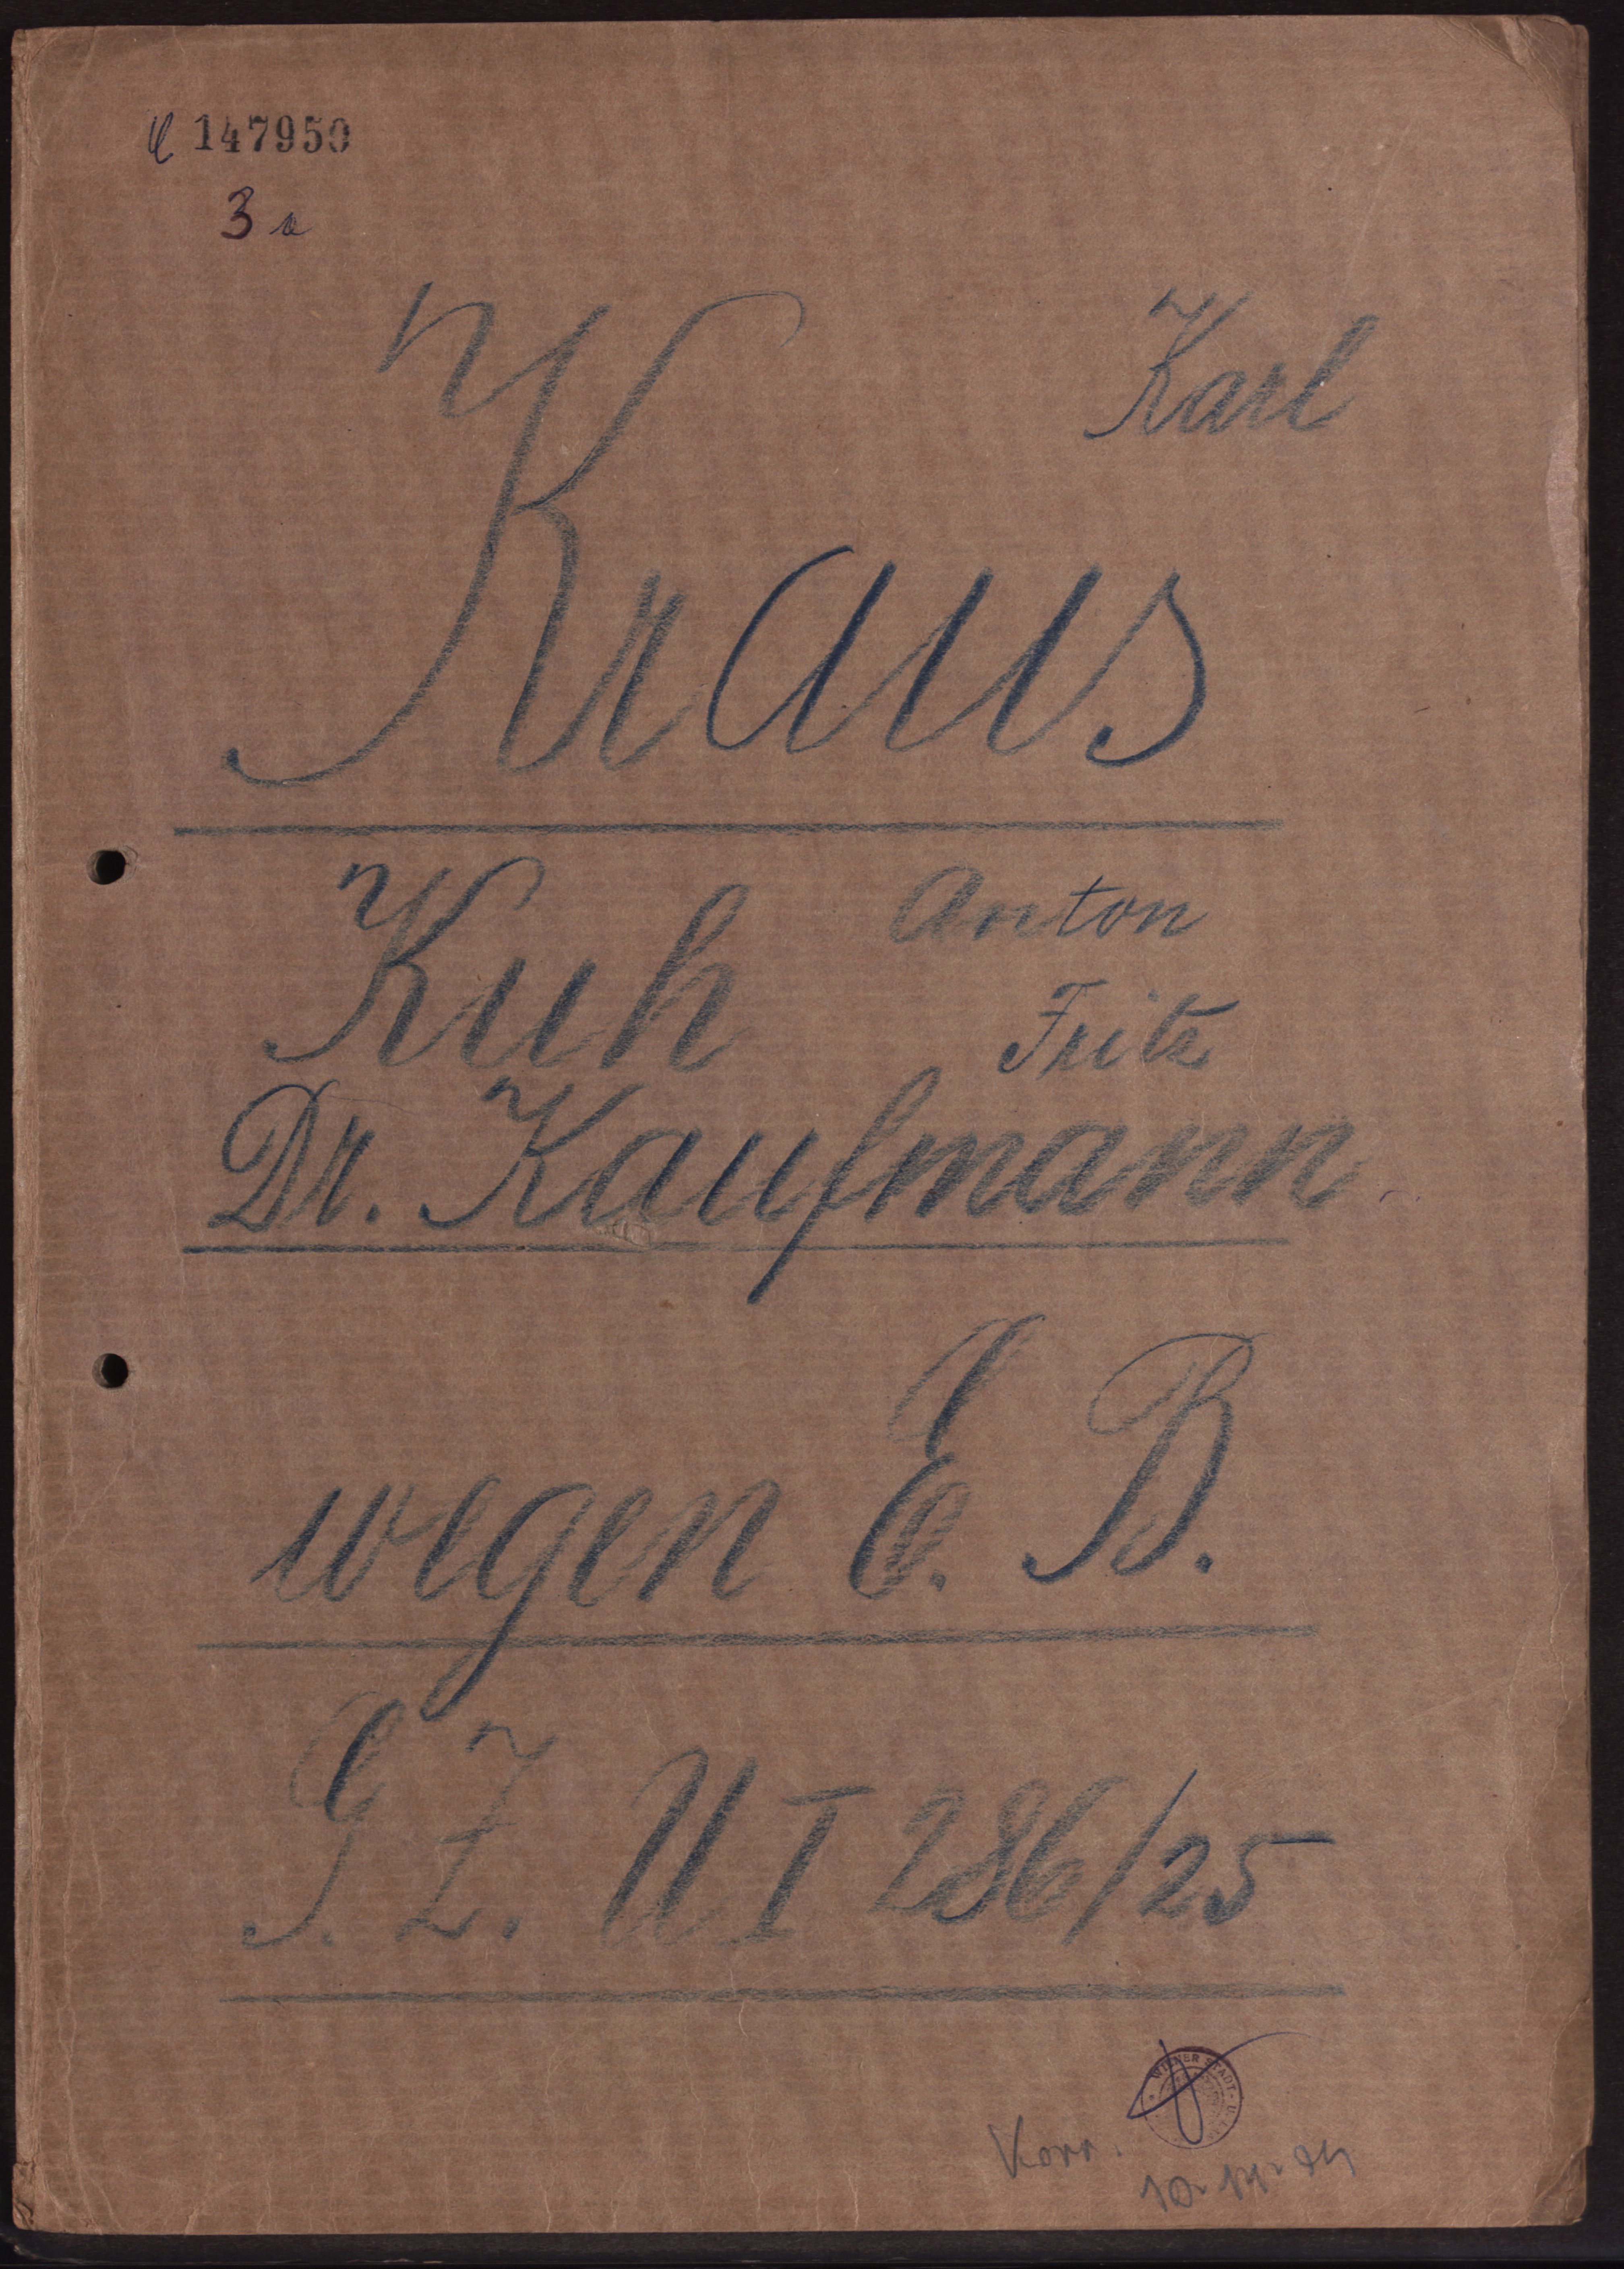 147950
3 a
Karl
Kraus
Kuh Anton
Fritz
Dr. Kaufmann
wegen E. B.
G. Z. U I 286/25
WIENER STADT-
Korr.